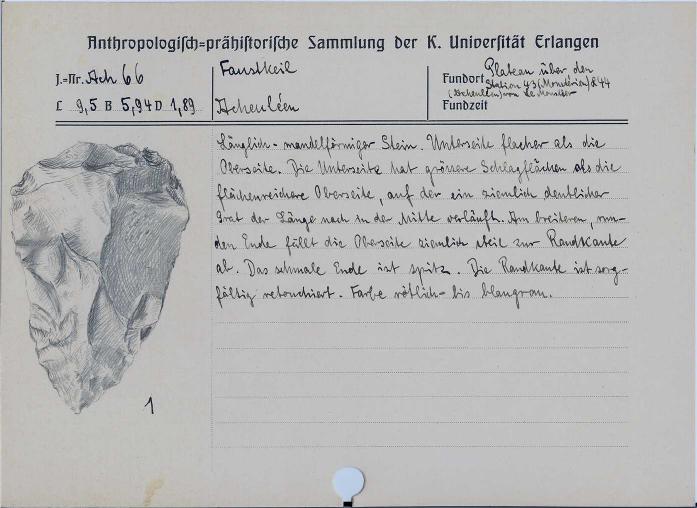 Anthropologisch=prähistorische Sammlung der K. Universität Erlangen
J.=Nr. Ach 66
Faustkeil
Fundort Plateau über den
Station 43 (Moustérien) & 44
(Acheuléen) von Le Moustier
L 9,5 B 5,94 D 1,89
Acheuléen
Fundzeit
Länglich-mandelförmiger Stein. Unterseite flacher als die
Oberseite. Die Unterseite hat grössere Schlagflächen als die
flächenreichere Oberseite, auf der ein ziemlich deutlicher
Grat der Länge nach in der Mitte verläuft. Am breiteren, run-
den Ende fällt die Oberseite ziemlich steil zur Randkante
ab. Das schmale Ende ist spitz. Die Randkante ist sorg-
fältig retouchiert. Farbe rötlich- bis blaugrau.
1